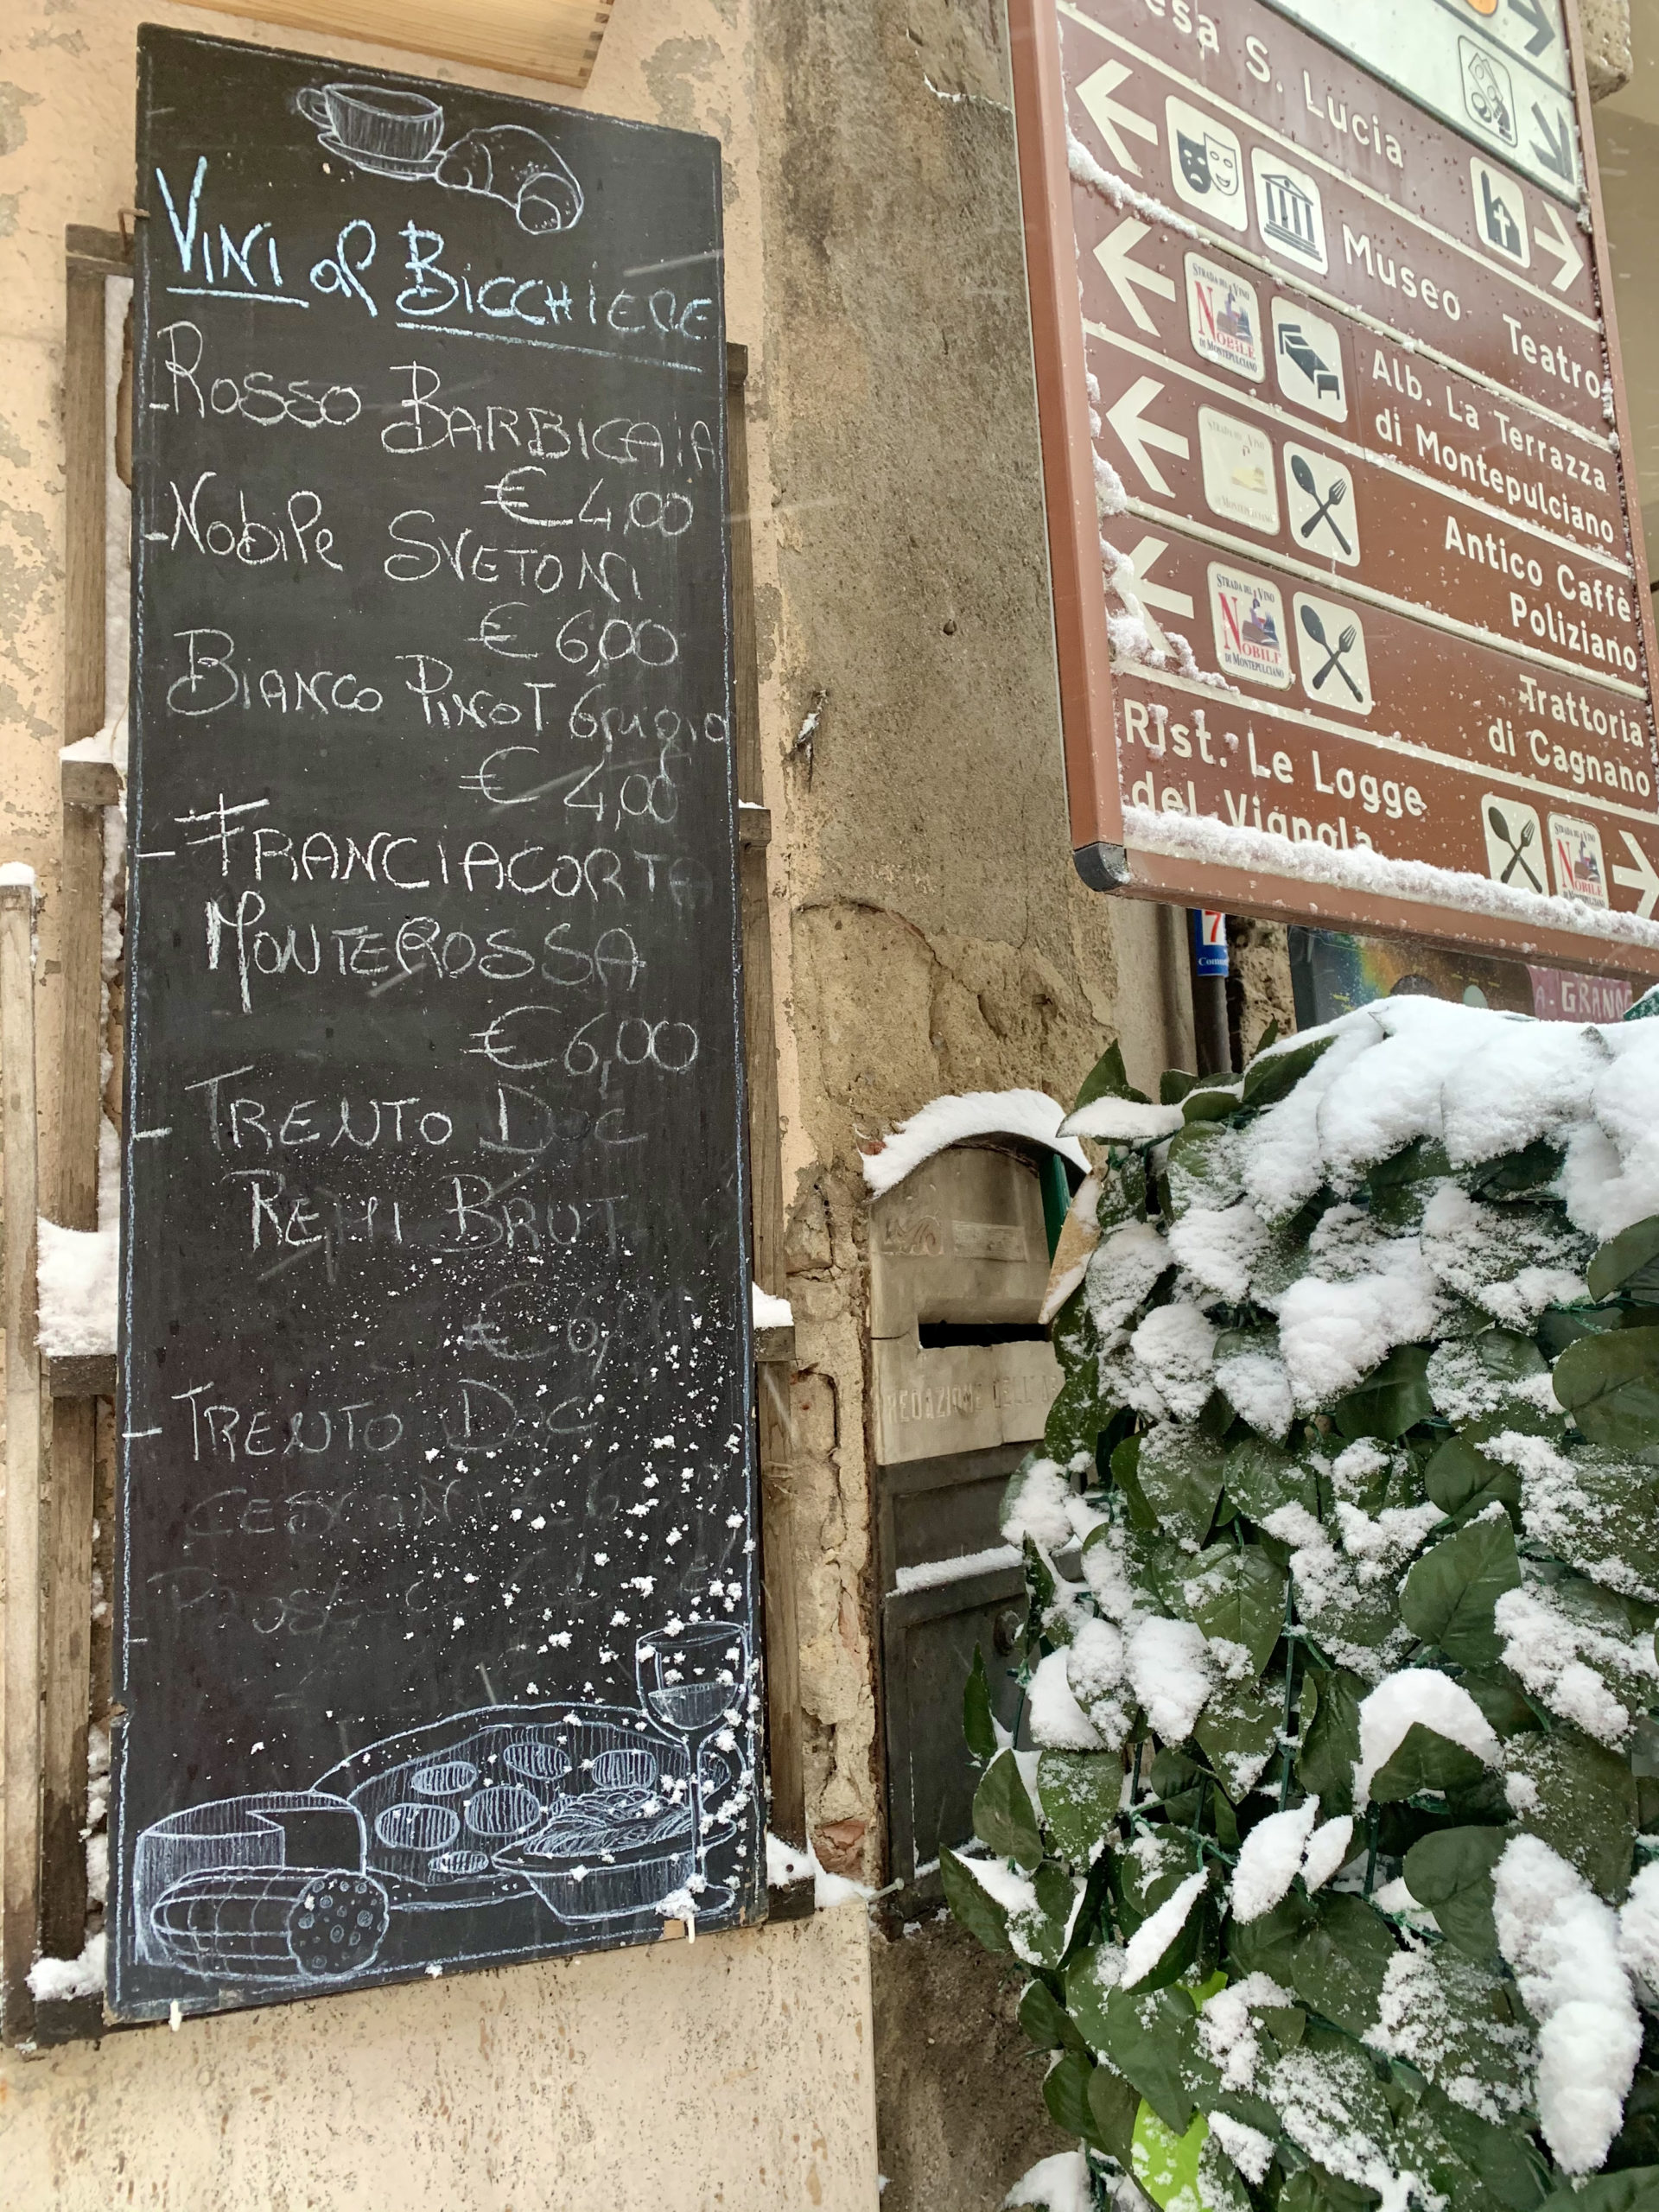 VINI al BICCHIERE
- ROSSO BARBICAIA
€ 4,00
- Nobile SVETONI
€ 6,00
BIANCO PINOT Grigio
€ 4,00
- FRANCIACORTA
MONTEROSSA
€ 6,00
- TRENTO DOC
REMI BRUT
€ 6,
- TRENTO DOC
S. Lucia
Museo Teatro
STRADA DEL VINO
NOBILE
DI MONTEPULCIANO
Alb. La Terrazza
di Montepulciano
STRADA DEL VINO
DI MONTEPULCIANO
Antico Caffè
Poliziano
STRADA DEL VINO
NOBILE
DI MONTEPULCIANO
Trattoria
di Cagnano
Rist. Le Logge
del Vignola
STRADA DEL VINO
NOBILE
7